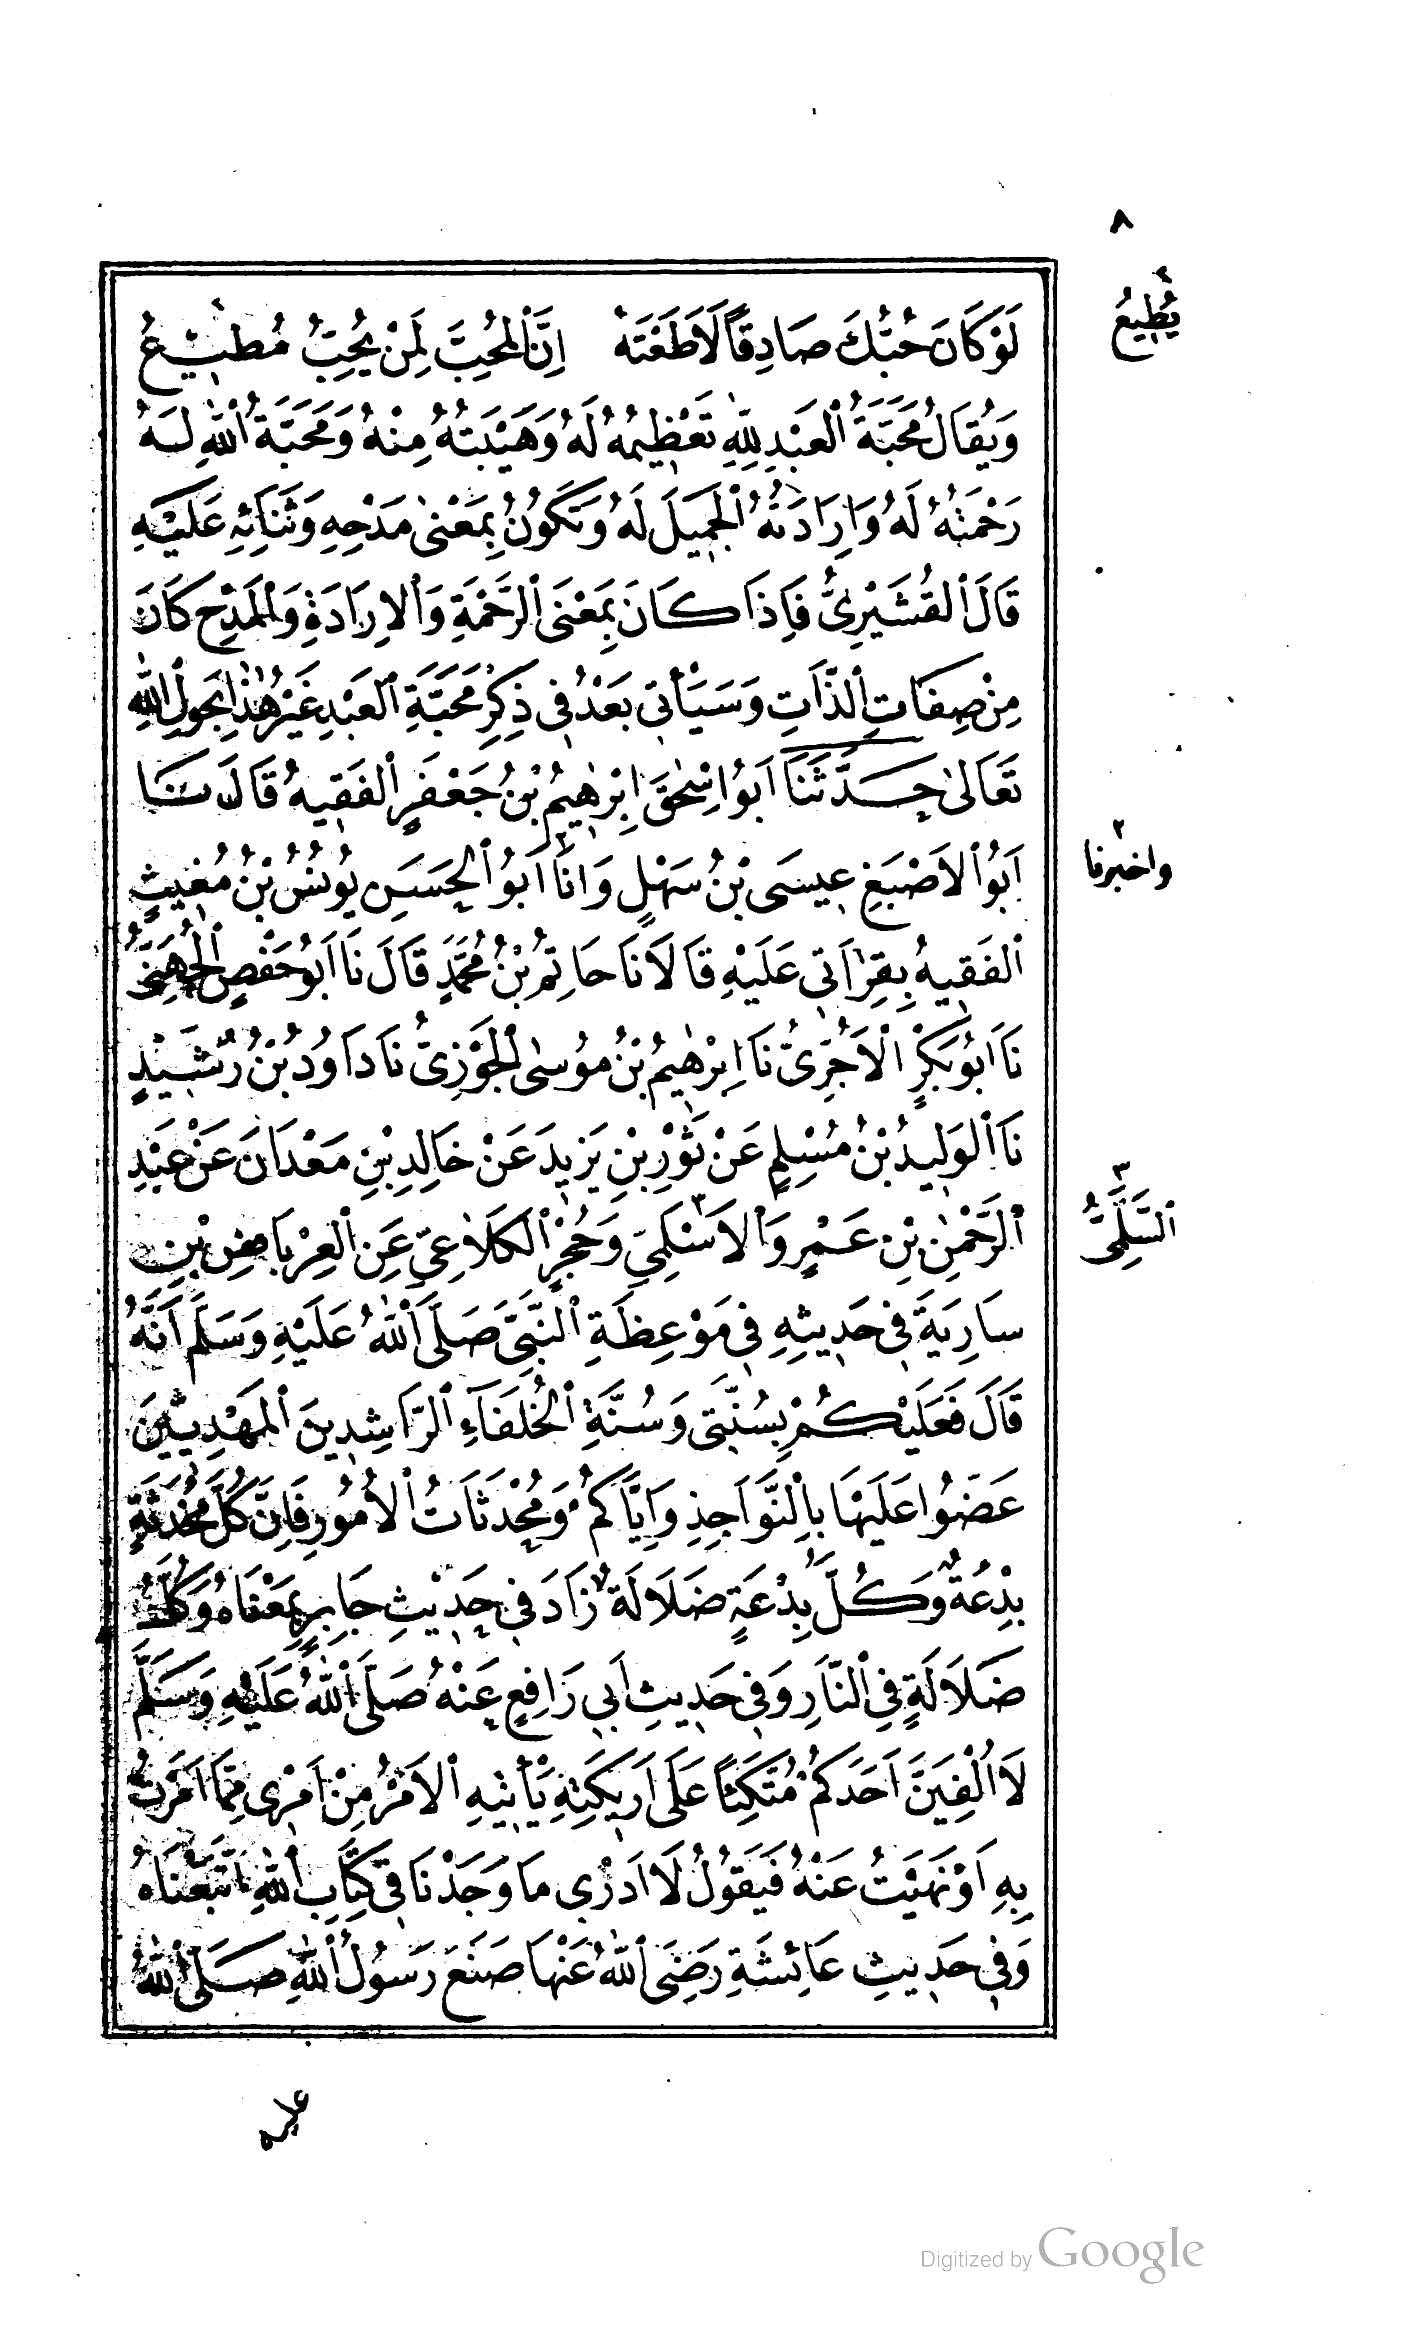 ٨
لَوْ كَانَ حُبُّكَ صَادِقًا لَاَطَعْتَهُ اِنَّ الْمُحِبَّ لِمَنْ يُحِبُّ مُطِيعُ
١
يُطِيعُ
وَيُقَالُ مَحَبَّةُ الْعَبْدِ لِلّٰهِ تَعْظِيمُهُ لَهُ وَهَيْبَتُهُ مِنْهُ وَمَحَبَّةُ اللّٰهِ لَهُ
رَحْمَتُهُ لَهُ وَاِرَادَتُهُ الْجَمِيلَ لَهُ وَتَكُونُ بِمَعْنٰى مَدْحِهِ وَثَنَائِهِ عَلَيْهِ
قَالَ الْقُشَيْرِىُّ فَاِذَا كَانَ بِمَعْنَى الرَّحْمَةِ وَالْاِرَادَةِ وَالْمَدْحِ كَانَ
مِنْ صِفَاتِ الذَّاتِ وَسَيَأْتِى بَعْدُ فِى ذِكْرِ مَحَبَّةِ الْعَبْدِ غَيْرُ هٰذَا بِحَوْلِ اللّٰهِ
تَعَالٰى حَدَّثَنَا اَبُو اِسْحٰقَ اِبْرٰهِيمُ بْنُ جَعْفَرٍ الْفَقِيهُ قَالَ نَنَا
اَبُو الْاَصْبَغِ عِيسَى بْنُ سَهْلٍ وَانَا اَبُو الْحَسَنِ يُونُسُ بْنُ مُغِيثٍ
٢
واخبرنا
الْفَقِيهُ بِقِرَاَتِى عَلَيْهِ قَالَا نَا حَاتِمُ بْنُ مُحَمَّدٍ قَالَ نَا اَبُو حَفْصٍ الْجُهَنِىُّ
نَا اَبُو بَكْرٍ الْآجُرِّىُّ نَا اِبْرٰهِيمُ بْنُ مُوسٰى الْجَوْزِىُّ نَا دَاوُدُ بْنُ رُشَيْدٍ
نَا الْوَلِيدُ بْنُ مُسْلِمٍ عَنْ ثَوْرِ بْنِ يَزِيدَ عَنْ خَالِدِ بْنِ مَعْدَانَ عَنْ عَبْدِ
الرَّحْمٰنِ بْنِ عَمْرٍو الْاَسْلَمِىِّ وَحُجْرٍ الْكَلَاعِىِّ عَنِ الْعِرْبَاضِ بْنِ
٣
السُّلَمِىُّ
سَارِيَةَ فِى حَدِيثِهِ فِى مَوْعِظَةِ النَّبِىِّ صَلَّى اللّٰهُ عَلَيْهِ وَسَلَّمَ اَنَّهُ
قَالَ فَعَلَيْكُمْ بِسُنَّتِى وَسُنَّةِ الْخُلَفَآءِ الرَّاشِدِينَ الْمَهْدِيِّينَ
عَضُّوا عَلَيْهَا بِالنَّوَاجِذِ وَاِيَّاكُمْ وَمُحْدَثَاتُ الْاُمُورِ فَاِنَّ كُلَّ مُحْدَثَةٍ
بِدْعَةٌ وَكُلَّ بِدْعَةٍ ضَلَالَةٌ زَادَ فِى حَدِيثِ جَابِرٍ بِمَعْنَاهُ وَكُلُّ
ضَلَالَةٍ فِى النَّارِ وَفِى حَدِيثِ اَبِى رَافِعٍ عَنْهُ صَلَّى اللّٰهُ عَلَيْهِ وَسَلَّمَ
لَا اُلْفِيَنَّ اَحَدَكُمْ مُتَّكِئًا عَلَى اَرِيكَتِهِ يَأْتِيهِ الْاَمْرُ مِنْ اَمْرِى مِمَّا اَمَرْتُ
بِهِ اَوْ نَهَيْتُ عَنْهُ فَيَقُولُ لَا اَدْرِى مَا وَجَدْنَا فِى كِتَابِ اللّٰهِ اتَّبَعْنَاهُ
وَفِى حَدِيثِ عَائِشَةَ رَضِىَ اللّٰهُ عَنْهَا صَنَعَ رَسُولُ اللّٰهِ صَلَّى اللّٰهُ
عليه
Digitized by Google